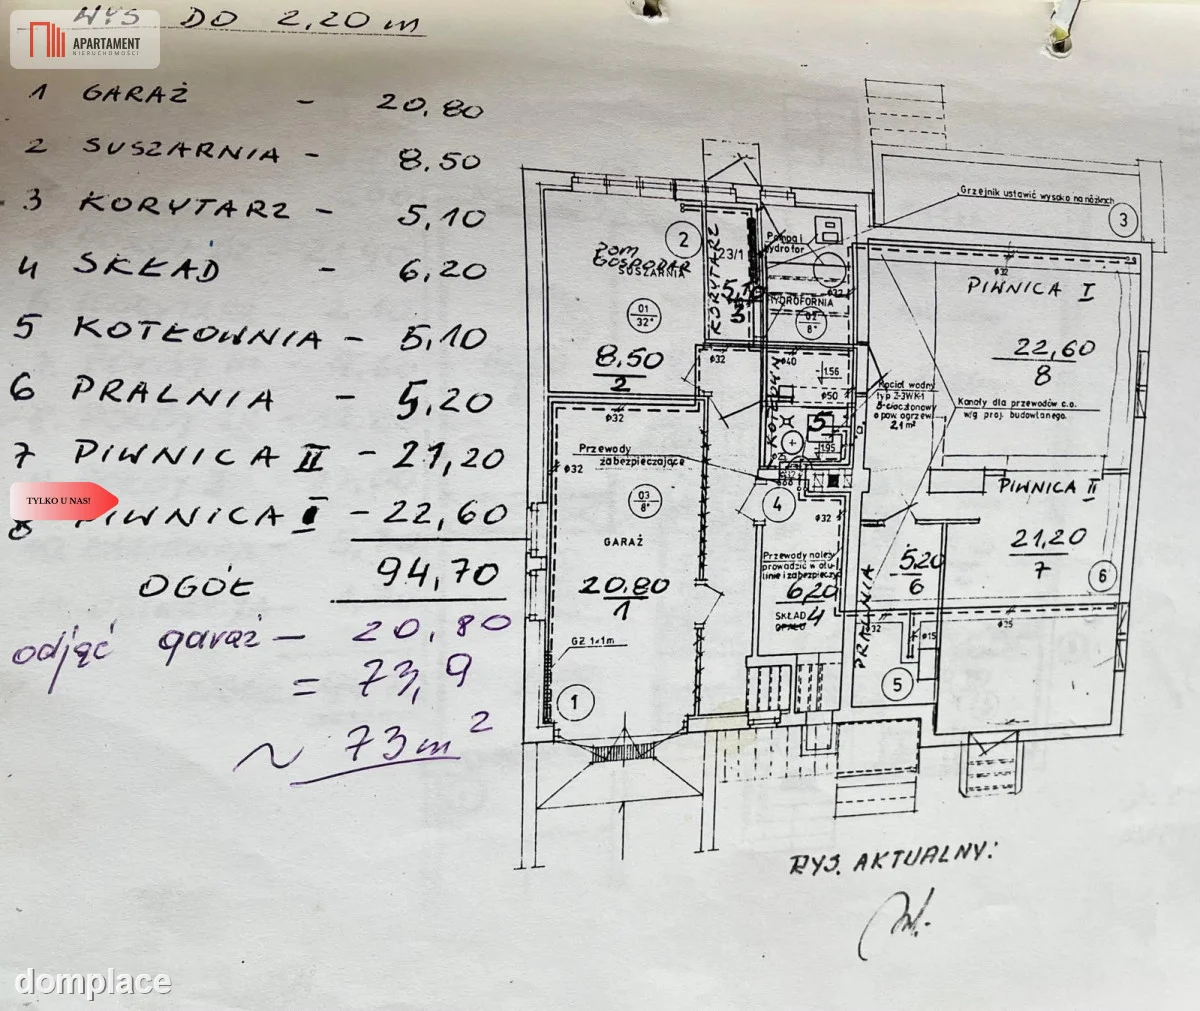 WYS DO 2,20 m
APARTAMENT
NIERUCHOMOŚCI
1 GARAŻ - 20,80
2 SUSZARNIA - 8.50
3 KORYTARZ - 5,10
4 SKŁAD - 6,20
5 KOTŁOWNIA - 5,10
6 PRALNIA - 5,20
7 PIWNICA II - 21,20
TYLKO U NAS!
8 PIWNICA I - 22,60
OGÓŁ 94,70
odjąć garaż - 20,80
= 73,9
~ 73 m²
Grzejnik ustawić wysoko na nóżkach
3
2
POM
GOSPODAR
SUSZARNIA
01
32°
8.50
2
KORYTARZ
23/1
5,10
3
Pompa i
hydrofor
HYDROFORNIA
ø32
PIWNICA I
22,60
8
Kanały dla przewodów c.o.
wg proj. budowlanego.
Kocioł wodny
typ Z-3WK-1
8-cioczłonowy
o pow ogrzew
2,1 m²
ø32
ø40
1.56
ø50
5
1.95
ø32
Przewody
zabezpieczające
ø32
03
8°
GARAŻ
20.80
1
GZ 1x1m
1
4
ø32
Przewody należy
prowadzić w otu-
linie i zabezpieczyć
6,20
4
SKŁAD
OPAŁU
PRALNIA
5.20
6
PIWNICA II
21,20
7
6
ø32
ø15
ø25
5
RYS. AKTUALNY:
domplace